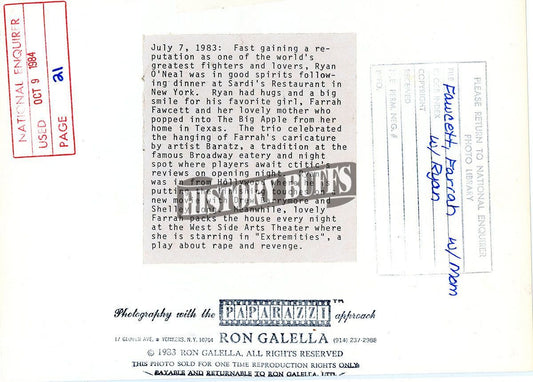 NATIONAL ENQUIRER
USED OCT 9 1984
PAGE 21
July 7, 1983: Fast gaining a re-
putation as one of the world's
greatest fighters and lovers, Ryan
O'Neal was in good spirits follow-
ing dinner at Sardi's Restaurant in
New York. Ryan had hugs and a big
smile for his favorite girl, Farrah
Fawcett and her lovely mother who
popped into The Big Apple from her
home in Texas. The trio celebrated
the hanging of Farrah's caricature
by artist Baratz, a tradition at the
famous Broadway eatery and night
spot where players await ctitic's
reviews on opening night.
was in from Hollywood
putting
new m rrymore and
Shell Meanwhile, lovely
Farrah packs the house every night
at the West Side Arts Theater where
she is starring in "Extremities", a
play about rape and revenge.
HISTORY BUFFS
PLEASE RETURN TO NATIONAL ENQUIRER
PHOTO LIBRARY
FILE Fawcett, Farrah w/ Mom
w/ Ryan
COPYRIGHT
N.E. PERM. NEG. #
Photography with the PAPARAZZI™ approach
17 GLOVER AVE. YONKERS, N.Y. 10704 RON GALELLA (914) 237-2988
© 1983 RON GALELLA, ALL RIGHTS RESERVED
THIS PHOTO SOLD FOR ONE TIME REPRODUCTION RIGHTS ONLY
PAYABLE AND RETURNABLE TO RON GALELLA, LTD.